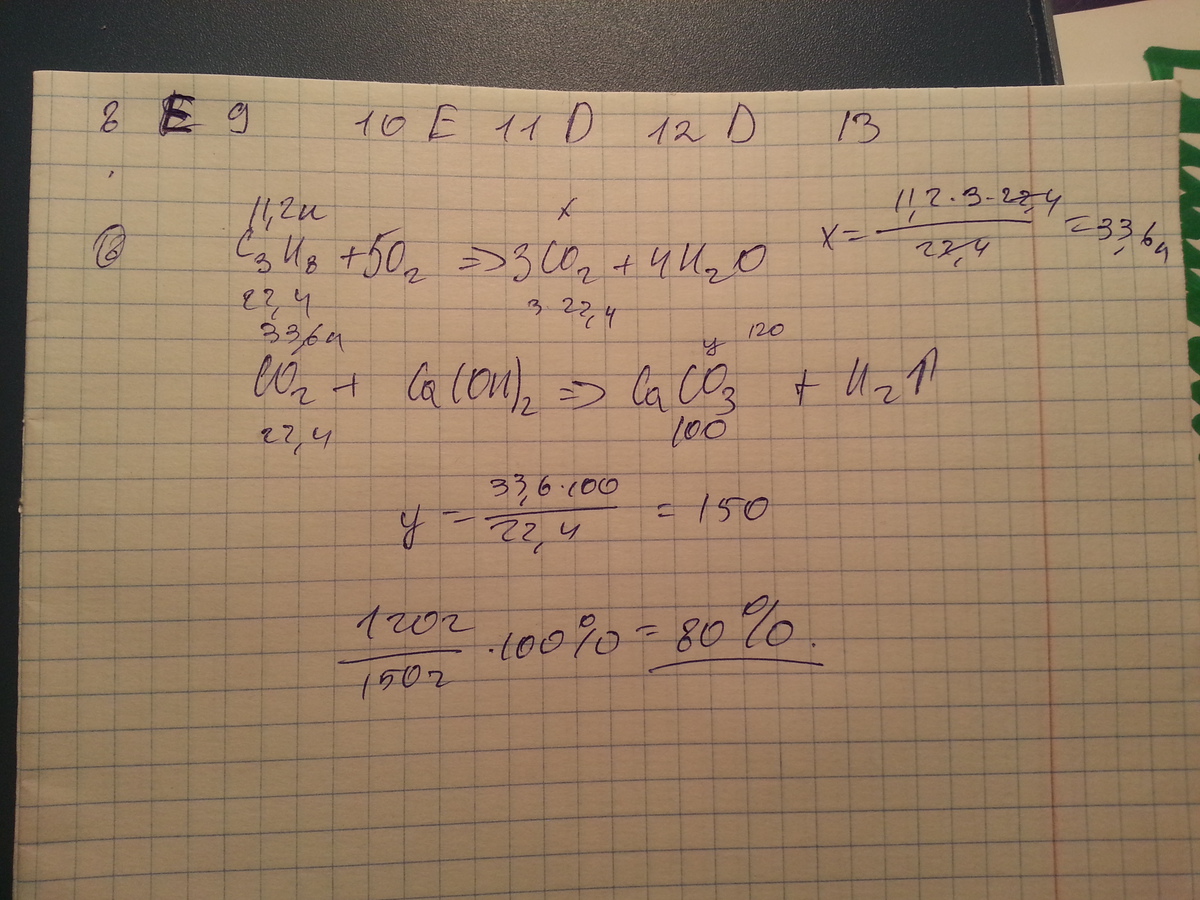 8 E 9 10 E 11 D 12 D 13
11,2л x
C₃H₈ + 5O₂ => 3CO₂ + 4H₂O x = 11,2·3·22,4 / 22,4 = 33,6л
22,4 3·22,4
33,6л y 120
CO₂ + Ca(OH)₂ => CaCO₃ + H₂
22,4 100
y = 33,6·100 / 22,4 = 150
120г / 150г ·100% = 80%.